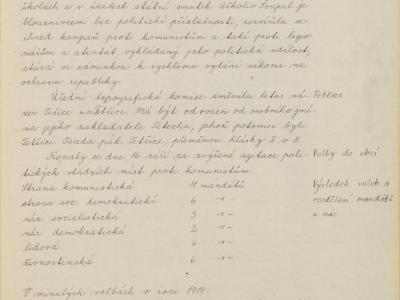 úkolách a v úřadech státní smutek. Ačkoliv Šoupal je
blouznivcem bez politické příslušnosti, rozvířila se
ihned kampaň proti komunistům a také proti legio-
nářům a atentát vykládaný jako politická událost,
stává se záminkou k rychlému vydání zákona na
ochranu republiky.
Úřední topografická komise změnila letos ná-
Tetčice
zev Tečice na Tetčice. Má být odvozen od osobního jmé-
na jejího zakladatele Tetecha, jehož potomci byli
Tetčici. Osada pak Tetčice, přeměnou hlásky
Konaly se dne 16. září za zvýšené agitace poli-
Volby do obcí
tických vládních míst proti komunistům.
Strana komunistická 11 mandátů
Výsledek voleb a
strana soc. demokratická 6 -„-
rozdělení mandátů
nár. socialistická 3 -„-
u nás
nár. demokratická 2 -„-
lidová 4 -„-
živnostenská 6 -„-
V minulých volbách v roce 1919.